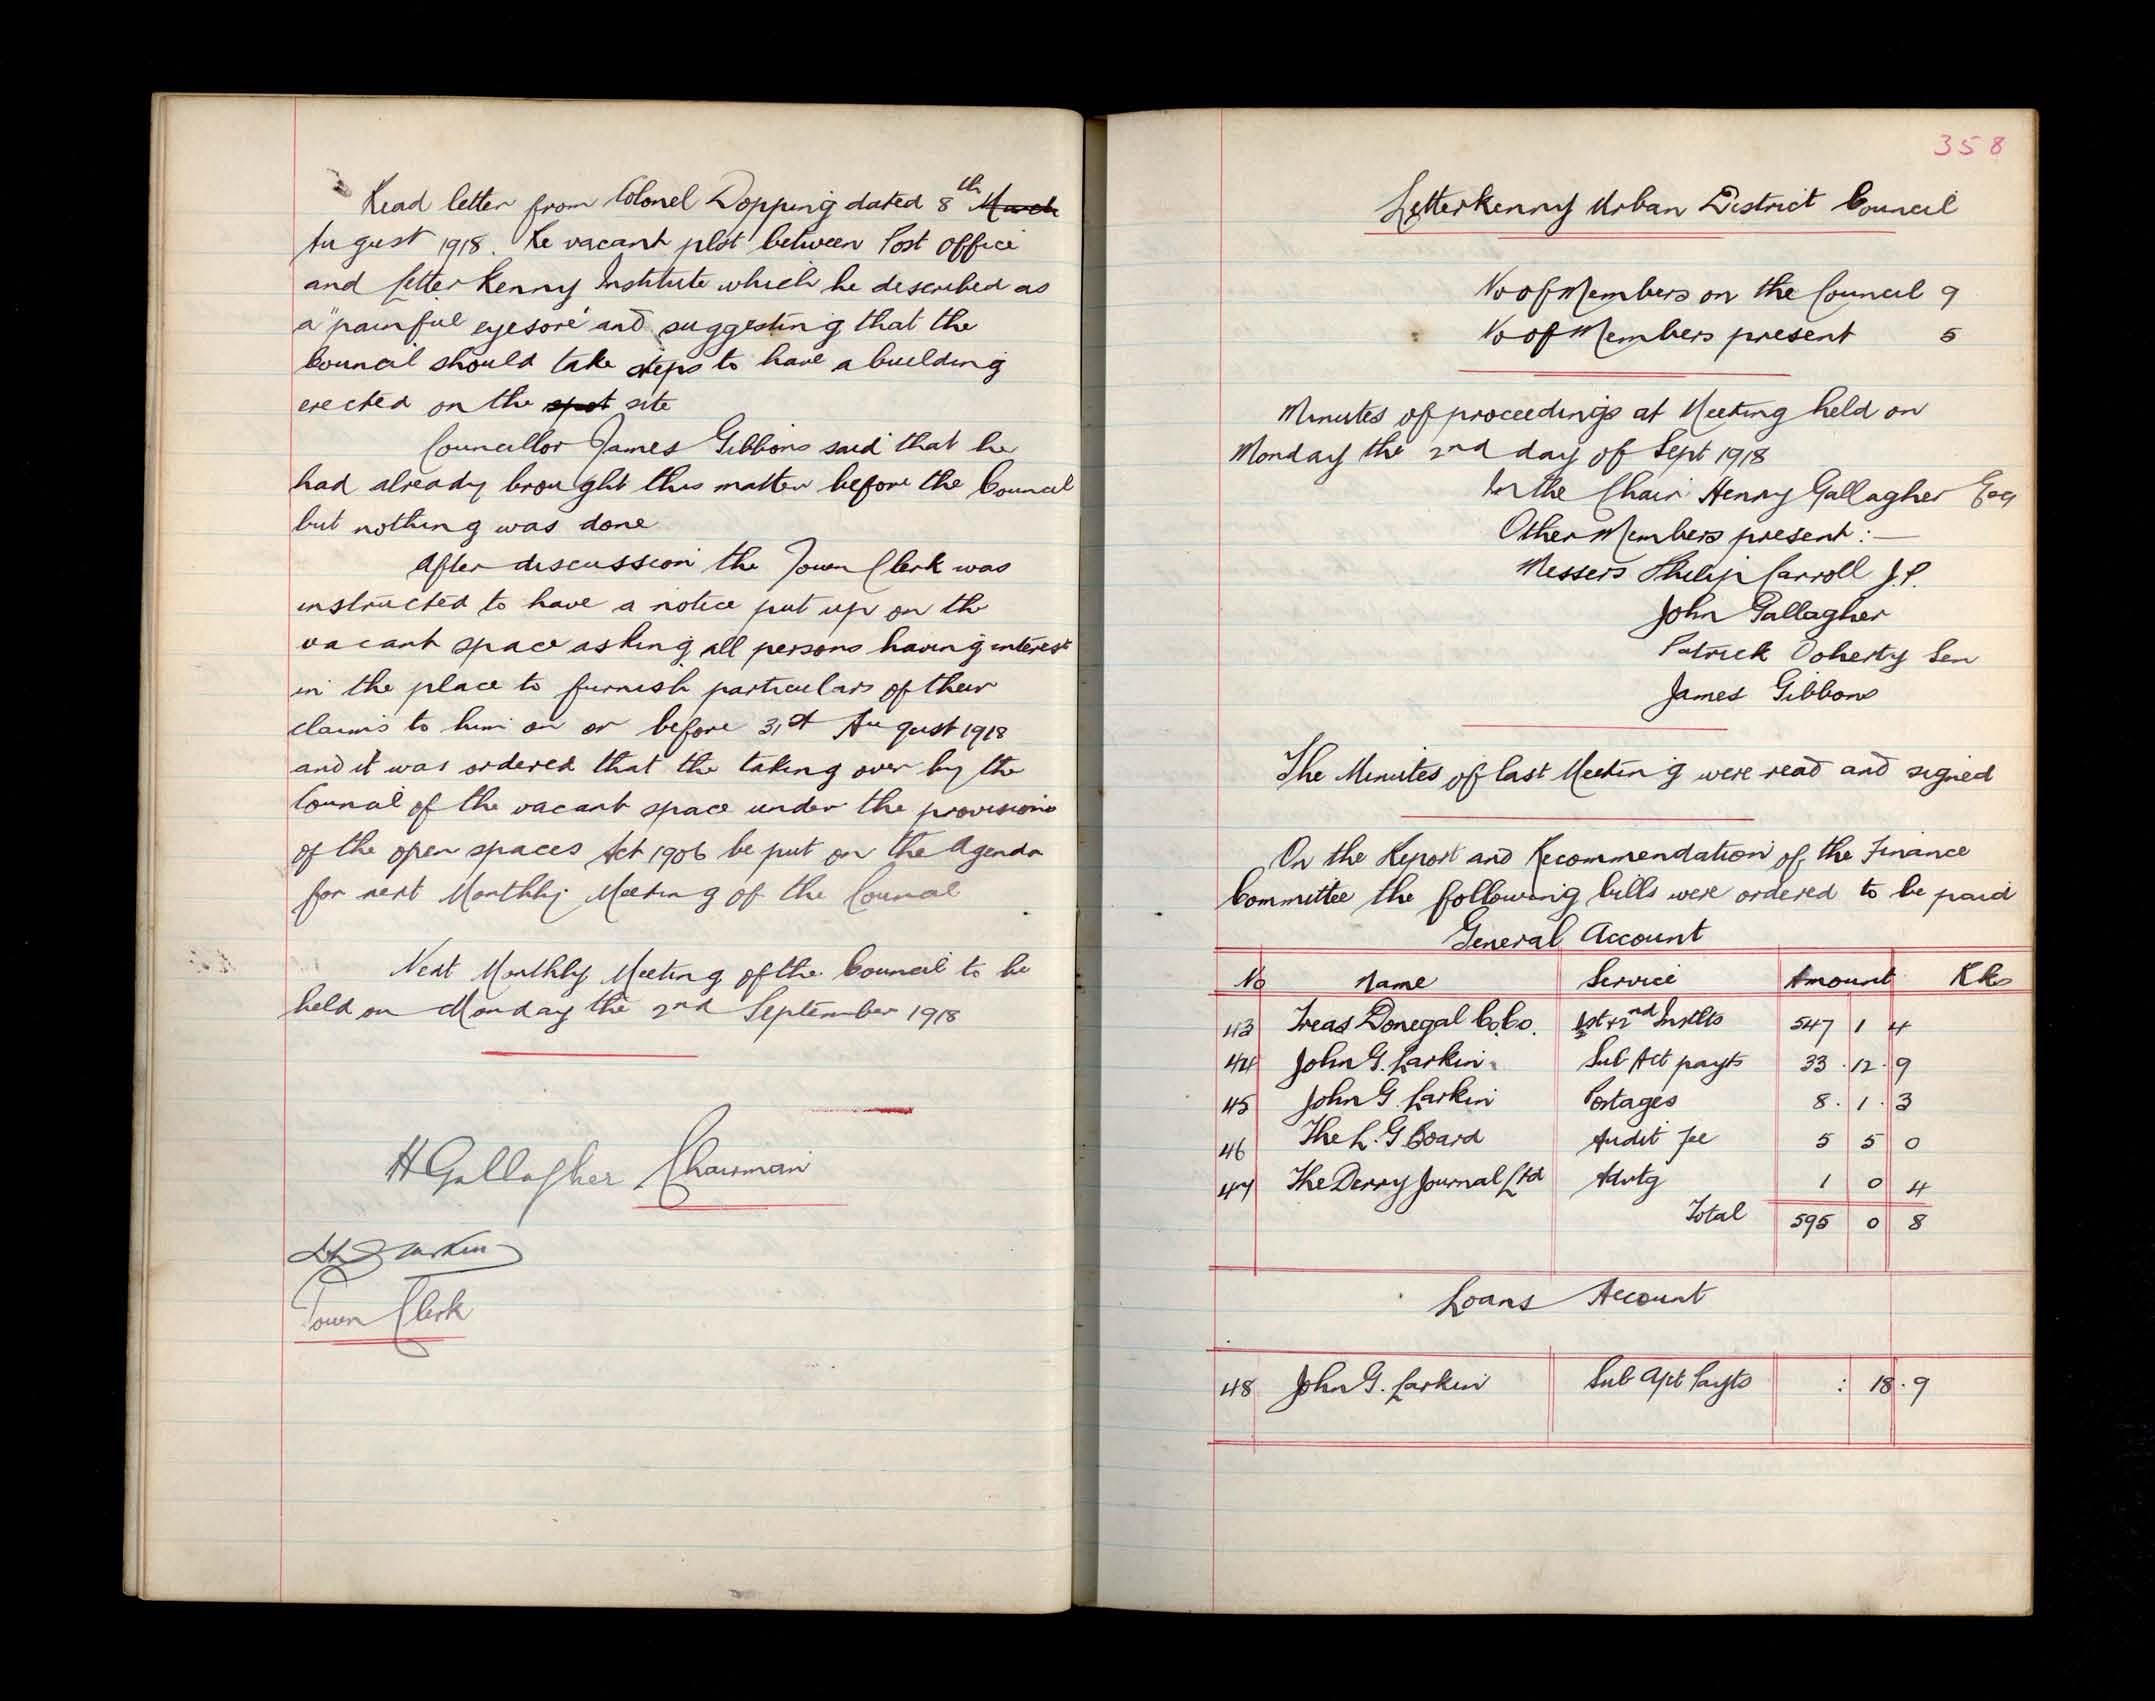 Read letter from Colonel Dopping dated 8th March
August 1918. Re vacant plot between Post Office
and Letterkenny Institute which he described as
a "painful eyesore" and suggesting that the
Council should take steps to have a building
erected on the spot site
Councillor James Gibbons said that he
had already brought this matter before the Council
but nothing was done
After discussion the Town Clerk was
instructed to have a notice put up on the
vacant space asking all persons having interest
in the place to furnish particulars of their
claims to him on or before 31st August 1918
and it was ordered that the taking over by the
Council of the vacant space under the provisions
of the open spaces Act 1906 be put on the Agenda
for next Monthly Meeting of the Council
Next Monthly Meeting of the Council to be
held on Monday the 2nd September 1918
H Gallagher Chairman
Larkin
Town Clerk
358
Letterkenny Urban District Council
No of Members on the Council 9
No of Members present 5
Minutes of proceedings at Meeting held on
Monday the 2nd day of Sept 1918
In the Chair Henry Gallagher Esq
Other Members present :—
Messers Philip Carroll J.P.
John Gallagher
Patrick Doherty Sen
James Gibbons
The Minutes of last Meeting were read and signed
On the Report and Recommendation of the Finance
Committee the following bills were ordered to be paid
General Account
No Name Service Amount Rks
43 Treas Donegal Co. Co. 1st + 2nd Instlts 547 1 4
44 John G. Larkin Sub Act payts 33 . 12 . 9
45 John G Larkin Postages 8 . 1 . 3
46 The L. G Board Audit fee 5 5 0
47 The Derry Journal Ltd Advtg 1 0 4
Total 595 0 8
Loans Account
48 John G. Larkin Sub Act Payts : 18 . 9